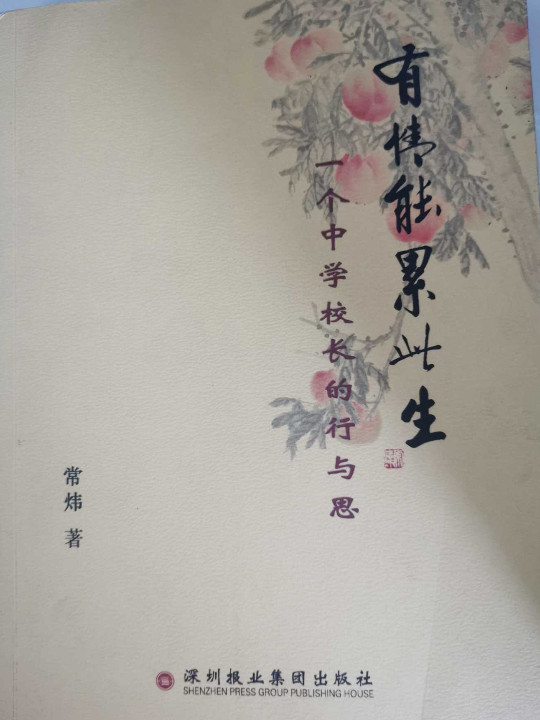 有情能累此生
一个中学校长的行与思
常炜 著
深圳报业集团出版社
SHENZHEN PRESS GROUP PUBLISHING HOUSE